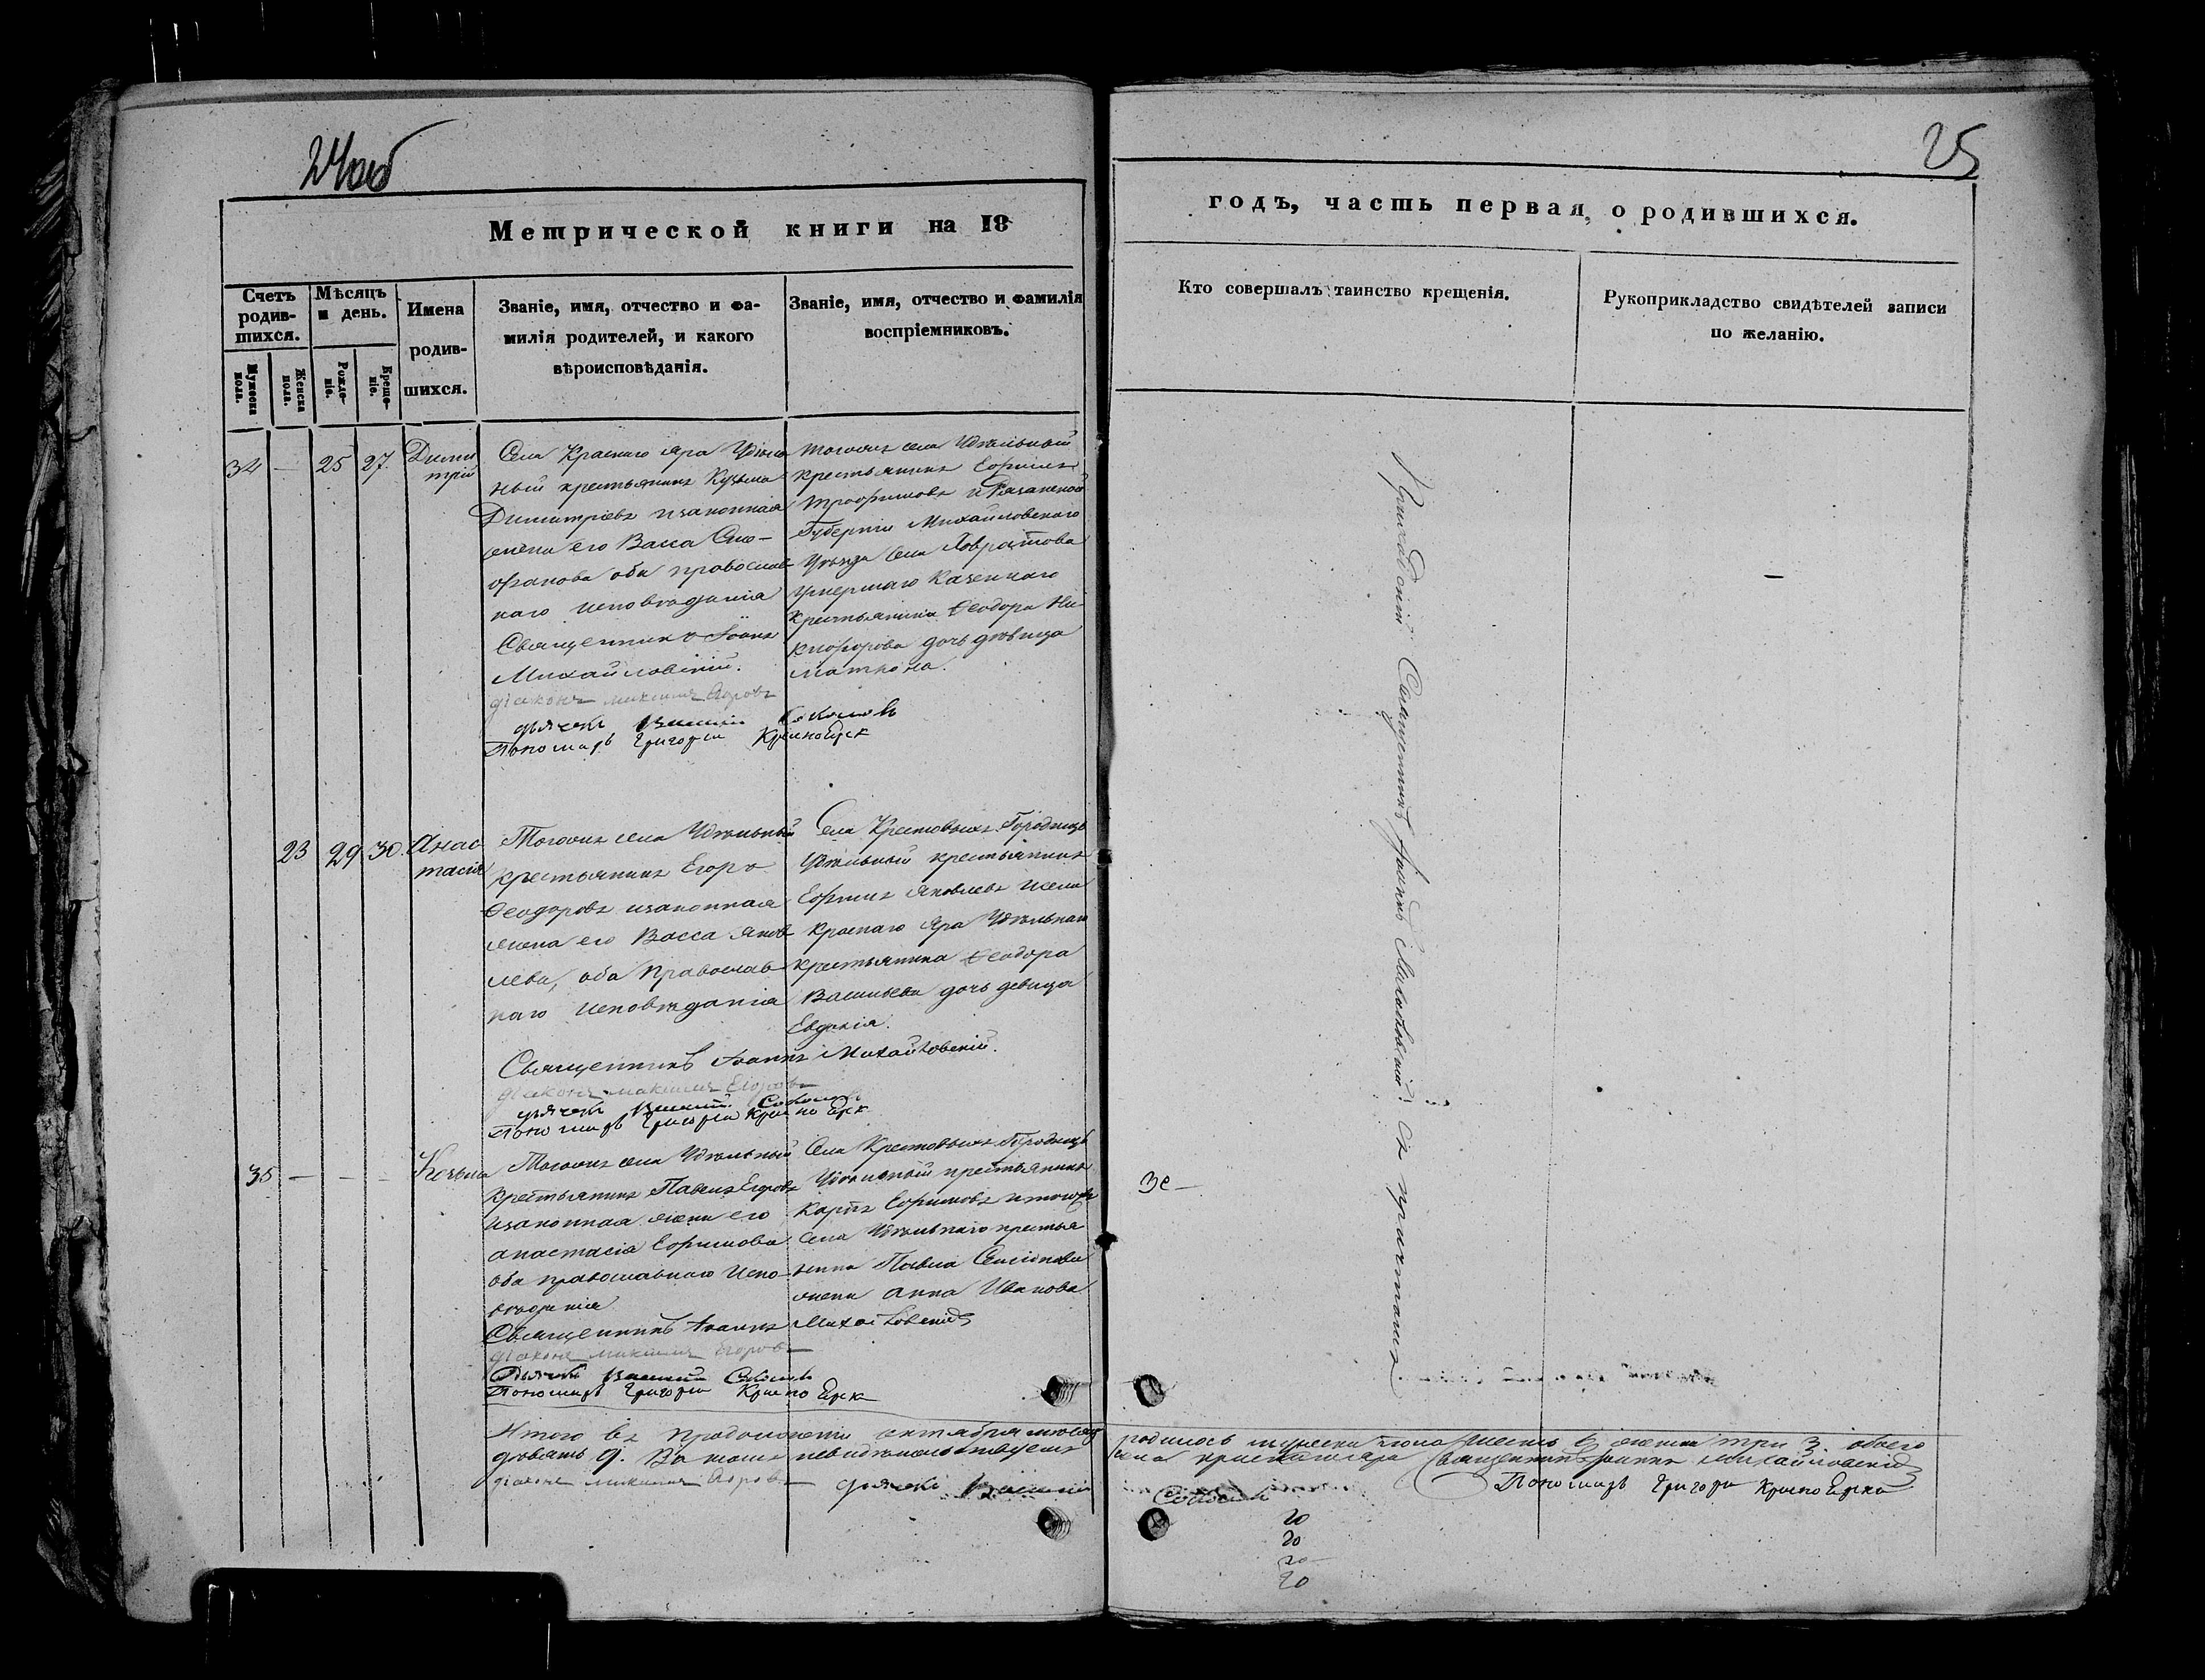 24 об
25
Метрической книги на 18
годъ, часть первая, о родившихся.
Счетъ родив-шихся.
Мѣсяцъ и день.
Имена родив-шихся.
Званіе, имя, отчество и фа-
милія родителей, и какого
вѣроисповѣданія.
Званіе, имя, отчество и фамилія
воспріемниковъ.
Кто совершалъ таинство крещенія.
Рукоприкладство свидѣтелей записи
по желанію.
Мужеска пола.
Женска пола.
Рожде-ніе.
Креще-ніе.
34 — 25 27.
Дими
трій
Села Краснаго Яра Удѣль
ный крестьянинъ Кузьма
Димитріевъ и законная
жена его Васса
оба православ
наго исповѣданія
Священникъ Іоаннъ
Михайловскій.
діаконъ Максимъ Егоровъ
дьячекъ Василій Соколовъ
Пономарь Григорій
тогоже села Удѣльный
крестьянинъ Ефимъ
Трофимовъ и Рязанской
Губерніи Михайловскаго
Уѣзда села
умершаго Казеннаго
крестьянина Ѳеодора Ни
кифорова дочь дѣвица
Матрона.
23 29 30.
Анас
тасія
Тогоже села Удѣльный
крестьянинъ Егоръ
Ѳеодоровъ и законная
жена его Васса Яков
лева, оба Православ
наго исповѣданія
Священникъ Іоаннъ Михайловскій.
діаконъ Максимъ Егоровъ
дьячекъ Василій Соколовъ
Пономарь Григорій
Села Крестовыхъ Городищъ
Удѣльный крестьянинъ
Ефимъ Яковлевъ и села
Краснаго Яра Удѣльнаго
крестьянина Ѳеодора
Васильева дочь девица
Евдокія.
35 — — —
Козьма
Тогоже села Удѣльный
крестьянинъ Павелъ Егоровъ
и законная жена его
Анастасія Ефимова
оба православнаго испо-
вѣданія
Священникъ Іоаннъ Михайловскій
діаконъ Максимъ Егоровъ
Дьячекъ Василій Соколовъ
Пономарь Григорій
Села Крестовыхъ Городищъ
Удѣльный крестьянинъ
Карпъ Ефимовъ и тогоже
села Удѣльнаго крестья
нина Павла Семіонова
жена Анна Иванова
Священникъ Іоаннъ Михайловскій съ причтомъ
Итого въ продолженіи октября мѣсяца родилось мужеска пола шесть 6 женска три 3. обоего
девять 9. села Краснаго Яра Священникъ Іоаннъ Михайловскій
діаконъ Максимъ Егоровъ дьячекъ Василій Соколовъ Пономарь Григорій
20
20
20
20